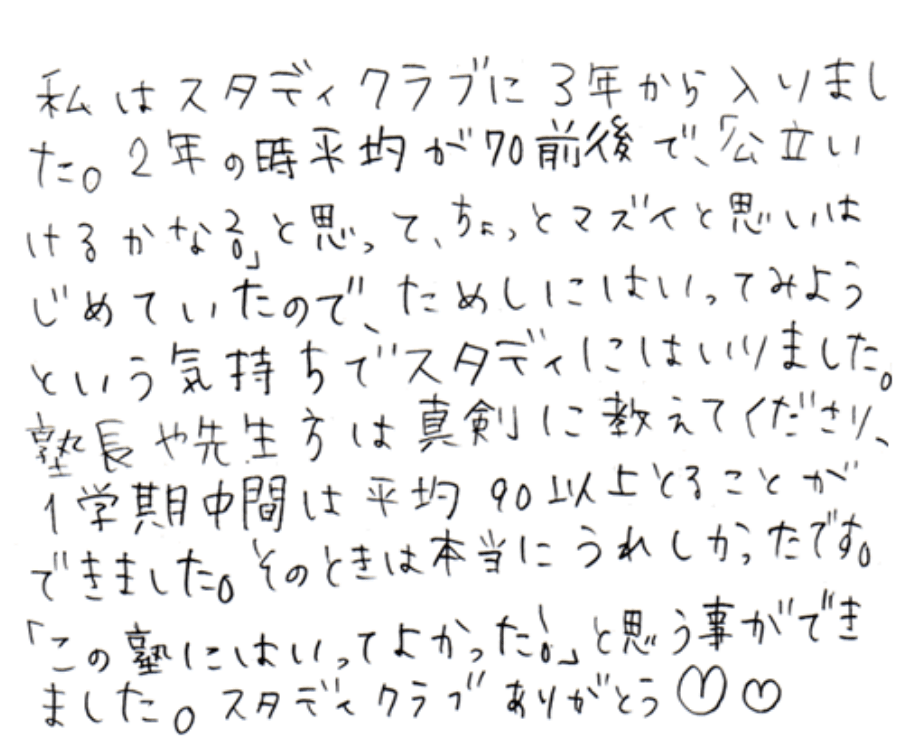 私はスタディクラブに3年から入りまし
た。2年の時平均が70前後で、「公立い
けるかなぁ?」と思って、ちょっとマズイと思いは
じめていたので、ためしにはいってみよう
という気持ちでスタディにはいりました。
塾長や先生方は真剣に教えてくださり、
1学期中間は平均90以上とることが
できました。そのときは本当にうれしかったです。
「この塾にはいってよかった!」と思う事ができ
ました。スタディクラブありがとう♡♡